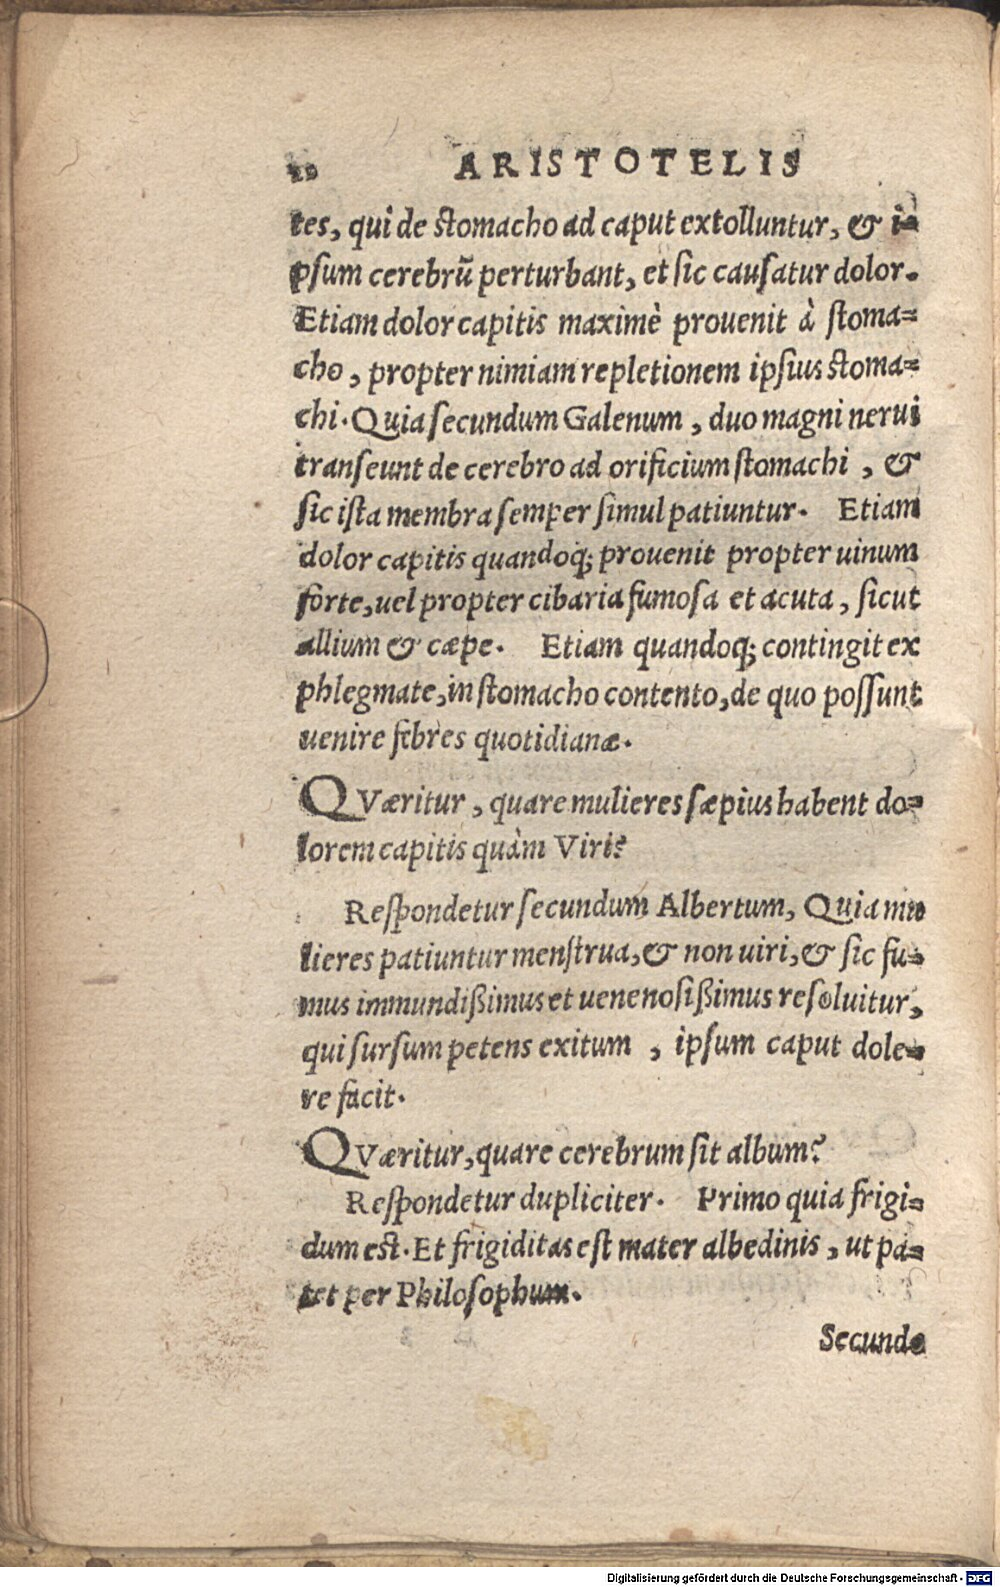 20 ARISTOTELIS
tes, qui de stomacho ad caput extolluntur, & i=
psum cerebrũ perturbant, et sic causatur dolor.
Etiam dolor capitis maximè prouenit à stoma=
cho, propter nimiam repletionem ipsius stoma=
chi. Quia secundum Galenum, duo magni nerui
transeunt de cerebro ad orificium stomachi, &
sic ista membra semper simul patiuntur. Etiam
dolor capitis quandoq; prouenit propter uinum
forte, uel propter cibaria fumosa et acuta, sicut
allium & cæpe. Etiam quandoq; contingit ex
phlegmate, in stomacho contento, de quo possunt
uenire febres quotidianæ.
QVæritur, quare mulieres sæpius habent do=
lorem capitis quàm Viri?
Respondetur secundum Albertum, Quia mu
lieres patiuntur menstrua, & non uiri, & sic fu=
mus immundißimus et uenenosißimus resoluitur,
qui sursum petens exitum, ipsum caput dole=
re facit.
QVæritur, quare cerebrum sit album?
Respondetur dupliciter. Primo quia frigi=
dum est. Et frigiditas est mater albedinis, ut pa=
tet per Philosophum.
Secundo
Digitalisierung gefördert durch die Deutsche Forschungsgemeinschaft - DFG